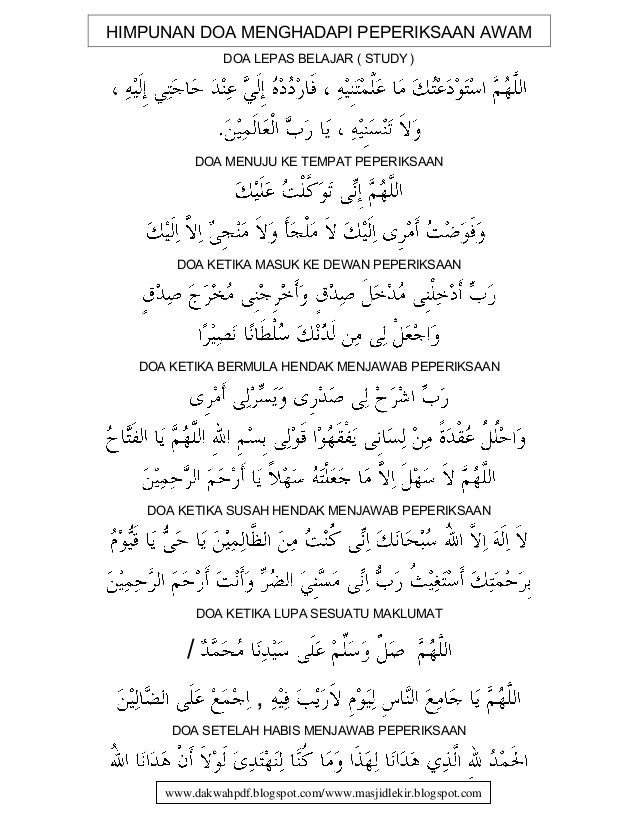 HIMPUNAN DOA MENGHADAPI PEPERIKSAAN AWAM
DOA LEPAS BELAJAR ( STUDY )
اللَّهُمَّ اسْتَوْدَعْتُكَ مَا عَلَّمْتَنِيْهِ ، فَارْدُدْهُ إِلَيَّ عِنْدَ حَاجَتِي إِلَيْهِ ،
وَلَا تَنْسَنِيْهِ ، يَا رَبَّ الْعَالَمِيْنَ.
DOA MENUJU KE TEMPAT PEPERIKSAAN
اللَّهُمَّ إِنِّى تَوَكَّلْتُ عَلَيْكَ
وَفَوَضْتُ أَمْرِى اِلَيْكَ لَا مَلْجَأَ وَلَا مَنْجِىَ اِلَّا اِلَيْكَ
DOA KETIKA MASUK KE DEWAN PEPERIKSAAN
رَبِّ أَدْخِلْنِى مُدْخَلَ صِدْقٍ وَأَخْرِجْنِى مُخْرَجَ صِدْقٍ
وَاجْعَلْ لِى مِن لَدُنْكَ سُلْطَانًا نَصِيْرًا
DOA KETIKA BERMULA HENDAK MENJAWAB PEPERIKSAAN
رَبِّ اشْرَحْ لِى صَدْرِى وَيَسِّرْلِى أَمْرِى
وَاحْلُلْ عُقْدَةً مِنْ لِسَانِى يَفْقَهُوْا قَوْلِى بِسْمِ اللهِ اللَّهُمَّ يَا الفَتَّاحُ
اللَّهُمَّ لَا سَهْلَ اِلَّا مَا جَعَلْتَهُ سَهْلًا يَا أَرْحَمَ الرَّحِمِيْنَ
DOA KETIKA SUSAH HENDAK MENJAWAB PEPERIKSAAN
لَا اِلَهَ اِلَّا اللهُ سُبْحَانَكَ اِنِّى كُنْتُ مِنَ الظَّالِمِيْنَ يَا حَىُّ يَا قَيُّوْمُ
بِرَحْمَتِكَ أَسْتَغِيْثُ رَبُّ اِنِّى مَسَّنِيَ الضُرِّ وَأَنْتَ أَرْحَمَ الرَّحِمِيْنَ
DOA KETIKA LUPA SESUATU MAKLUMAT
اللَّهُمَّ صَلِّ وَسَلِّمْ عَلَى سَيْدِنَا مُحَمَّدٌ /
اللَّهُمَّ يَا جَامِعَ النَّاسِ لِيَوْمِ لَارَيْبَ فِيْهِ , اِجْمَعْ عَلَى الضَّالِيْنَ
DOA SETELAH HABIS MENJAWAB PEPERIKSAAN
الْحَمْدُ لِلهِ الَّذِي هَدَانَا لِهَذَا وَمَا كُنَّا لِنَهْتَدِىَ لَوْلَا أَنْ هَدَانَا اللهُ
www.dakwahpdf.blogspot.com/www.masjidlekir.blogspot.com